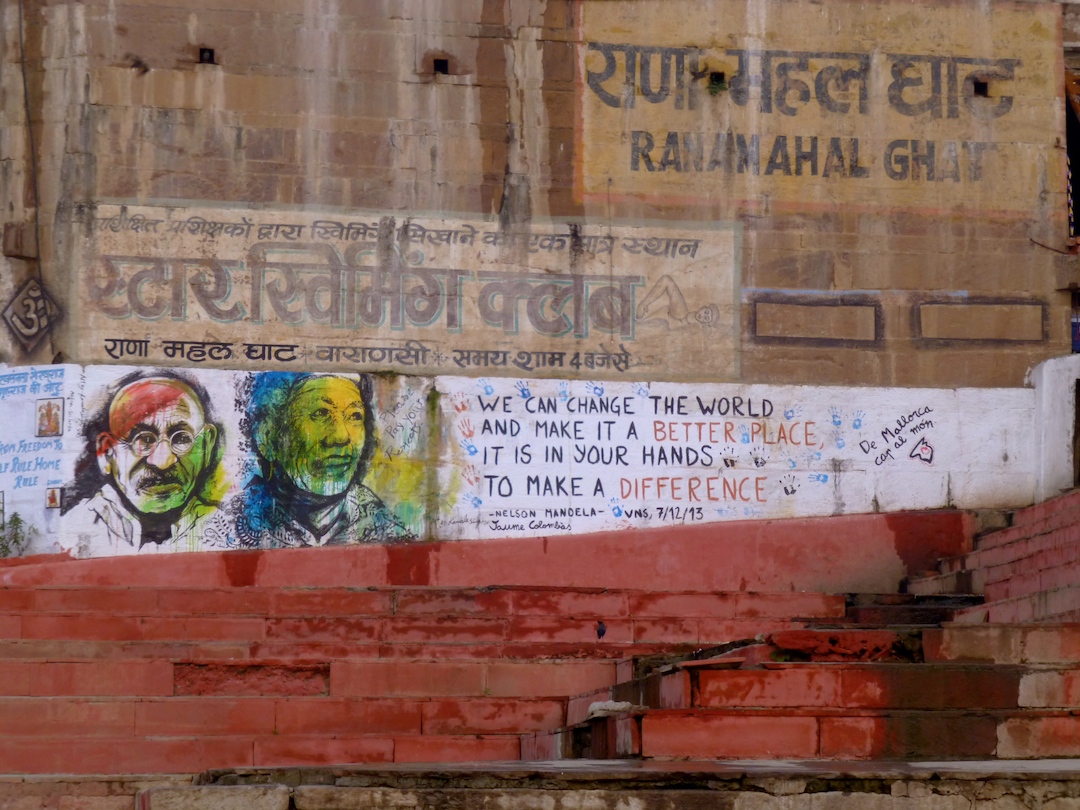 राणा महल घाट
RANAMAHAL GHAT
प्रशिक्षकों द्वारा स्विमिंग सिखाने का एक मात्र स्थान
स्टार स्विमिंग क्लब
राणा महल घाट * वाराणसी * समय शाम 4 बजे से
ॐ
FROM FREEDOM TO
SELF RULE HOME
RULE
WE CAN CHANGE THE WORLD
AND MAKE IT A BETTER PLACE,
IT IS IN YOUR HANDS
TO MAKE A DIFFERENCE
-NELSON MANDELA- VNS, 7/12/13
Jaume Colombàs
De Mallorca
cap al món